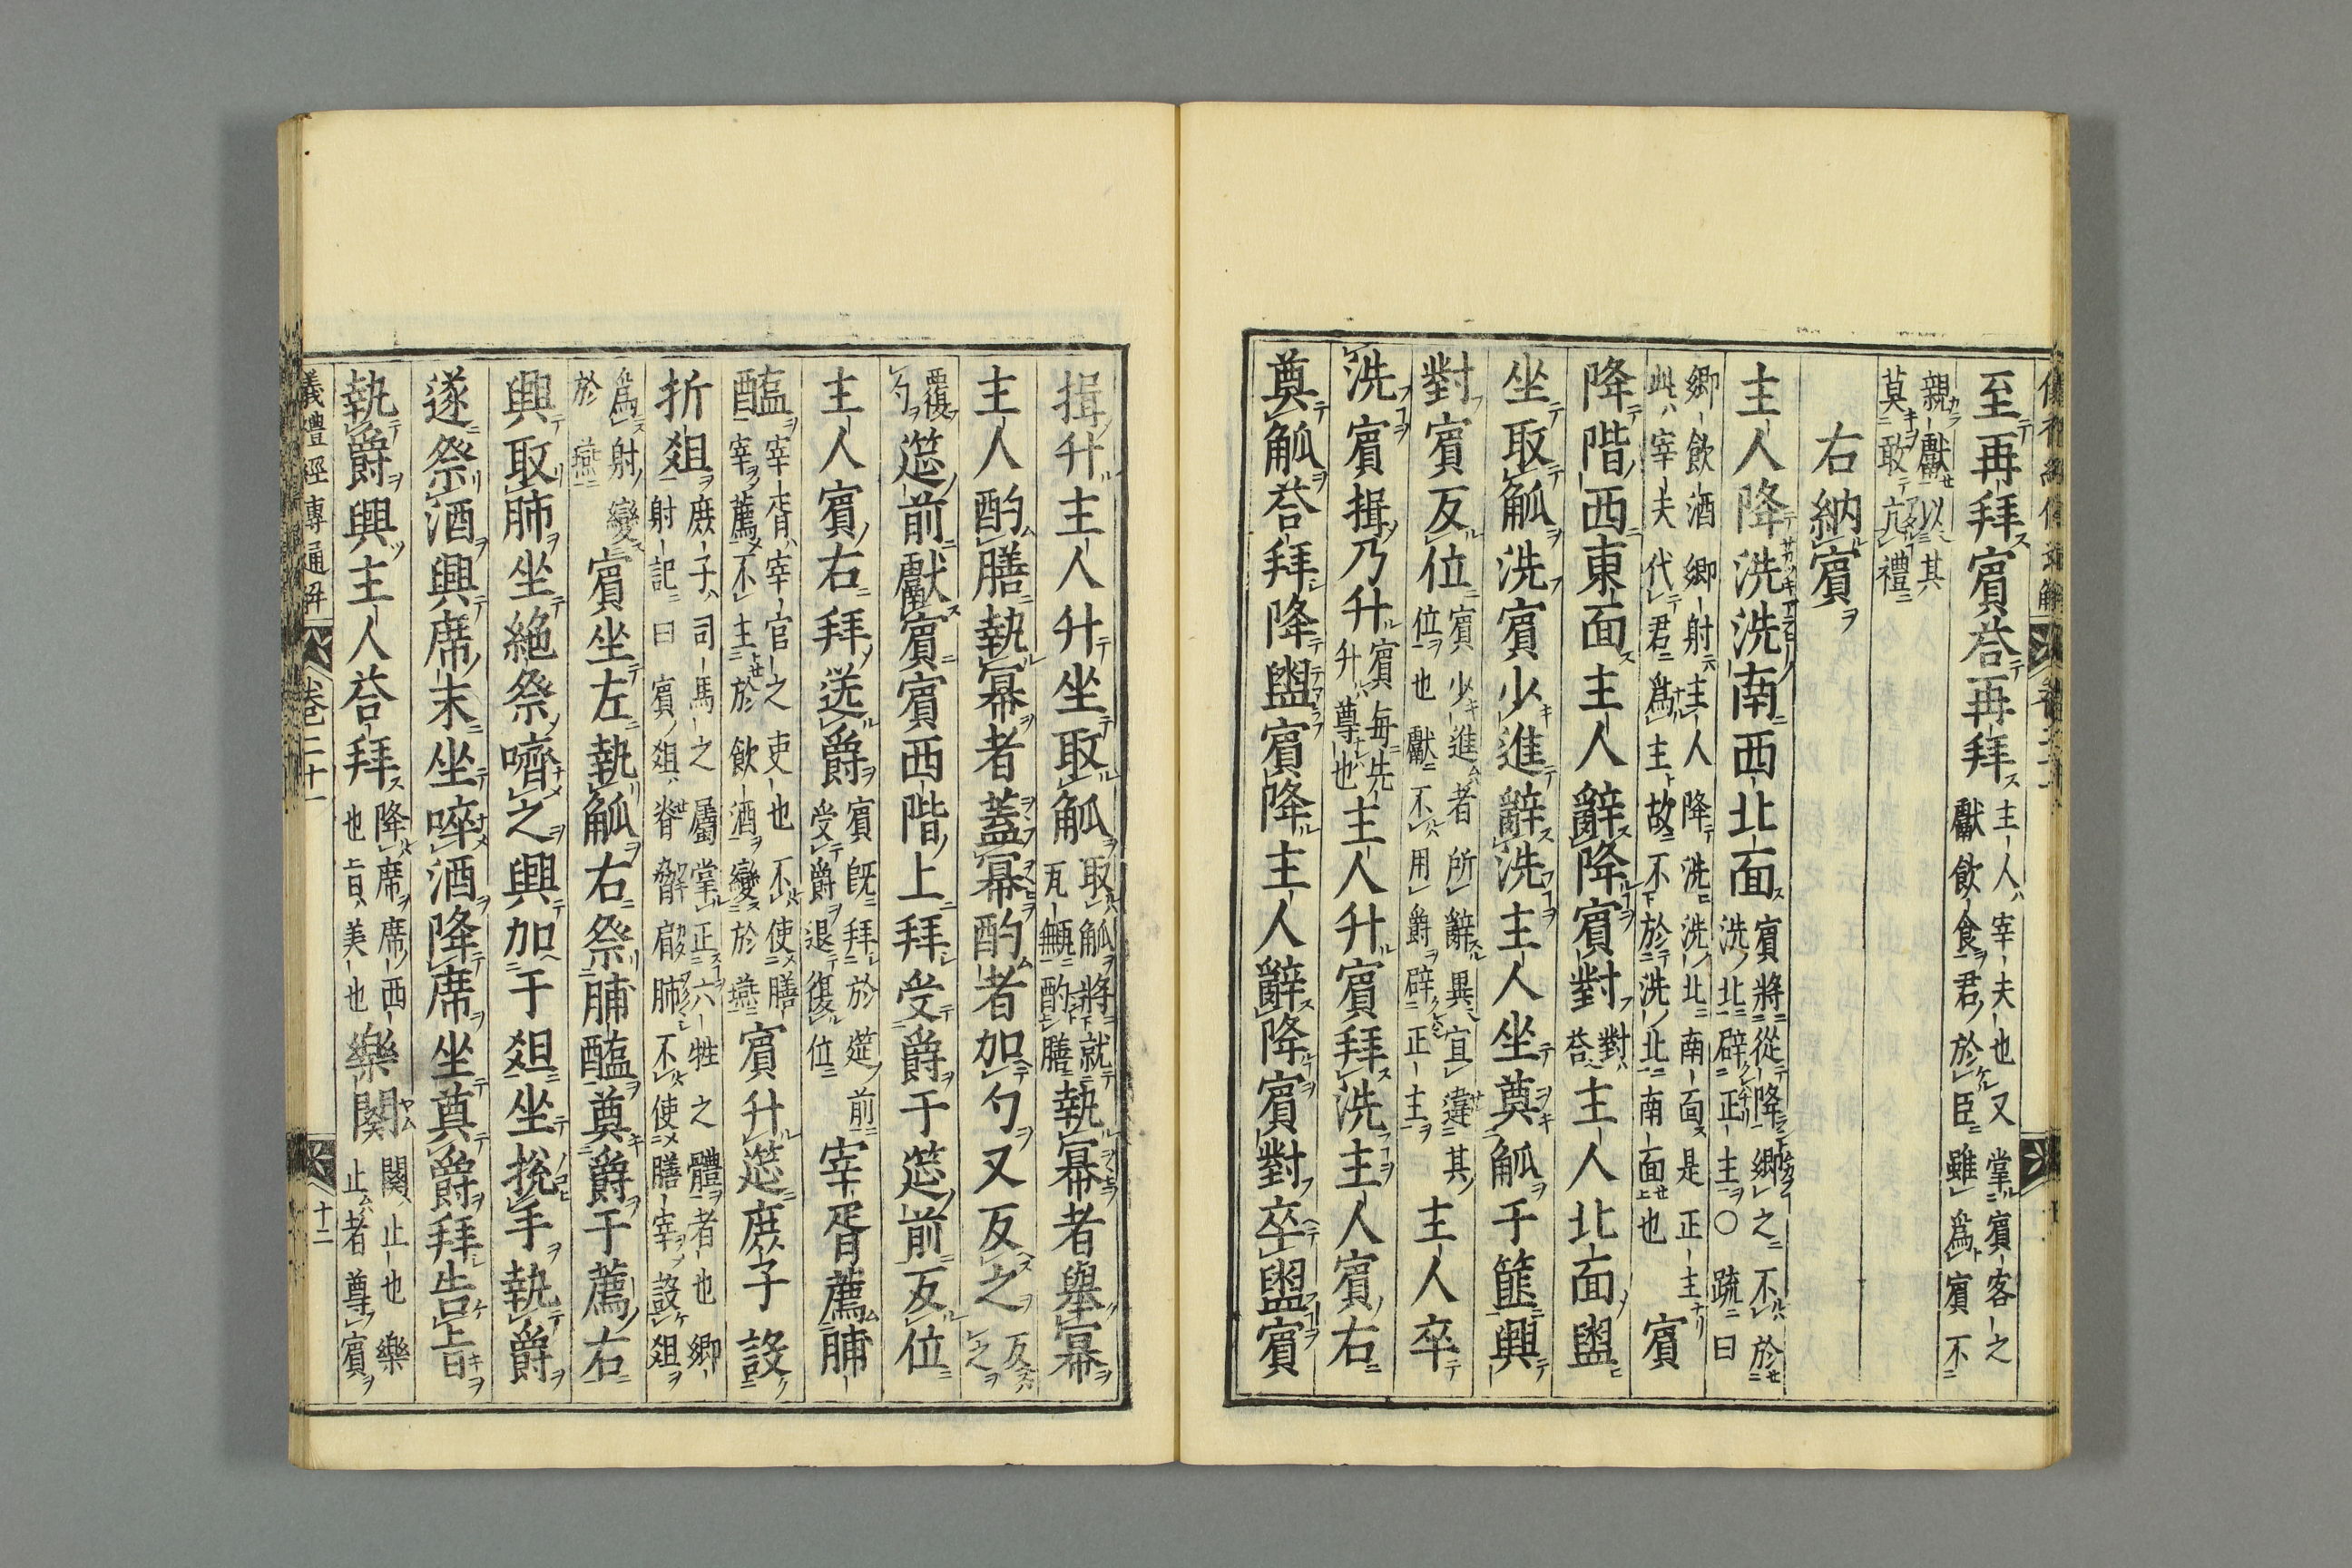 至再拜賓荅再拜主人宰夫也又掌賓客之獻飲食君於臣雖爲賓不
親獻以其莫敢亢禮
右納賓
主人降洗洗南西北面賓將從降鄉之不於洗北辟正主○疏曰
鄉飲酒鄉射主人降洗洗北南面是正主此宰夫代君爲主故不於洗北南面也賓
降階西東面主人辭降賓對對荅主人北面盥
坐取觚洗賓少進辭洗主人坐奠觚于篚興
對賓反位賓少進者所辭異宜違其位也獻不用爵辟正主主人卒
洗賓揖乃升賓每先升尊也主人升賓拜洗主人賓右
奠觚荅拜降盥賓降主人辭降賓對卒盥賓
揖升主人升坐取觚取觚將就瓦甒酌膳執冪者舉冪
主人酌膳執冪者蓋冪酌者加勺又反之反之
覆勺筵前獻賓賓西階上拜受爵于筵前反位
主人賓右拜送爵賓旣拜於筵前受爵退復位宰胥薦脯
醢宰胥宰官之吏也不使膳宰薦不主於飲酒變於燕賓升筵庶子設
折俎庶子司馬之屬掌正六牲之體者也鄉射記曰賓俎脊脅肩肺不使膳宰設俎
爲射變於燕賓坐左執觚右祭脯醢奠爵于薦右
興取肺坐絶祭嚌之興加于俎坐挩手執爵
遂祭酒興席末坐啐酒降席坐奠爵拜告旨
執爵興主人荅拜降席席西也旨美也樂闋闋止也樂止者尊賓
義禮經傳通解 卷二十一 十二